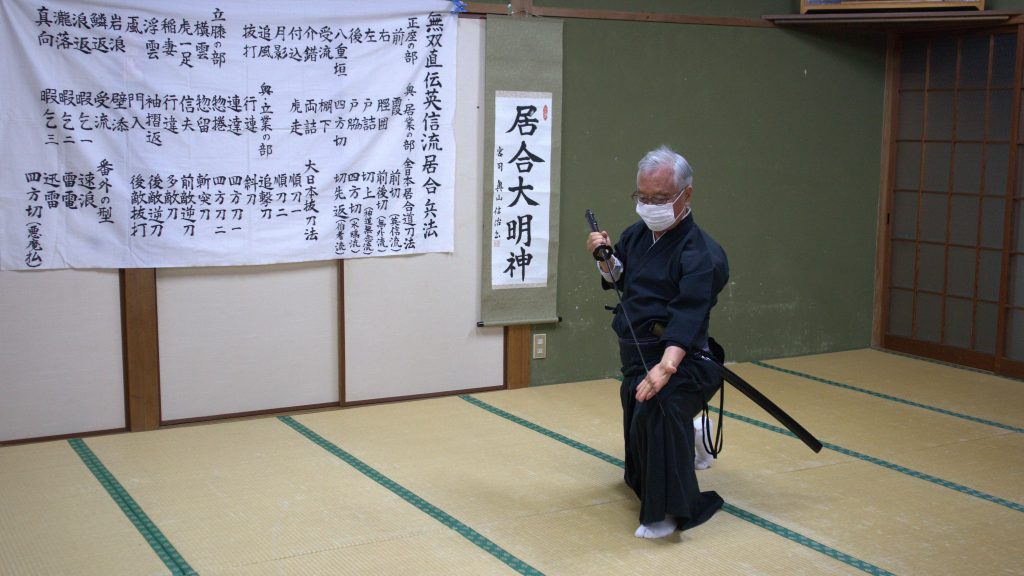 無双直伝英信流居合兵法
正座の部
前
右
左
後
八重垣
受流
介錯
付込
月影
追風
抜打
立膝の部
横雲
虎一足
稲妻
浮雲
岩浪
鱗返
浪返
瀧落
真向
奥居業の部
霞
脛囲
戸詰
戸脇
四方切
棚下
両詰
虎走
奥立業の部
行連
連達
惣捲
惣留
信夫
行違
袖摺返
門入
壁添
受流
暇乞一
暇乞二
暇乞三
全日本居合道刀法
前切(英信流)
前後切(無外流)
切上(神道無念流)
四方切(水鴎流)
切先返(伯耆流)
大日本抜刀法
順刀一
順刀二
追撃刀
斜刀
四方刀一
四方刀二
斬突刀
前敵逆刀
多敵刀
後敵逆刀
後敵抜打
番外の型
速浪
雷電
迅雷
四方切(悪魔払)
居合大明神
宮司 奥山信治